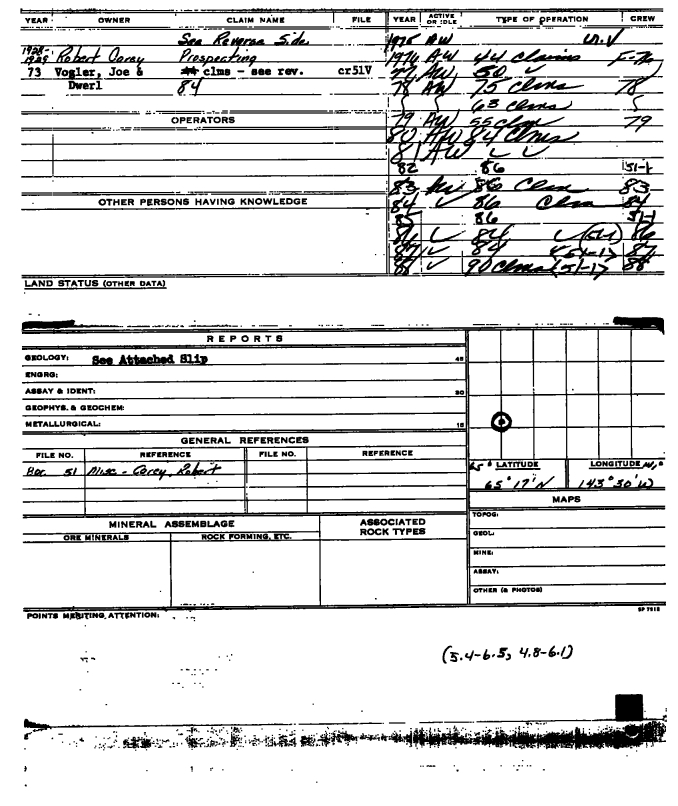 YEAR OWNER CLAIM NAME FILE YEAR ACTIVE OR IDLE TYPE OF OPERATION CREW
See Reverse Side 1975 AW
1928-1929 Robert Carey Prospecting 1976 AW 44 claims
73 Vogler, Joe & clms - see rev. cr51V 77 AW 50 ✓
Dwerl 84 78 AW 75 clms 78
63 clms
OPERATORS 79 AW 55 clm 79
80 AW 84 Clms
81 AW ✓ ✓
82 86 51-1
83 86 Clm 83
OTHER PERSONS HAVING KNOWLEDGE 84 ✓ 86 Clm 84
85 86 51-1
86 ✓ 84 ✓ (51-1) 86
87 ✓ 84 (51-1) 87
88 ✓ 90 clms (51-1) 88
LAND STATUS (OTHER DATA)
REPORTS
GEOLOGY: See Attached Slip 45
ENGRG:
ASSAY & IDENT: 30
GEOPHYS. & GEOCHEM:
METALLURGICAL: 15
GENERAL REFERENCES
FILE NO. REFERENCE FILE NO. REFERENCE
51 Misc - Carey, Robert
65° LATITUDE LONGITUDE
65°17'N 143°30'W
MAPS
MINERAL ASSEMBLAGE ASSOCIATED ROCK TYPES
ORE MINERALS ROCK FORMING, ETC.
TOPOG:
GEOL:
MINE:
ASSAY:
OTHER (& PHOTOS)
POINTS MERITING ATTENTION: SP 7913
(5.4-6.5, 4.8-6.1)